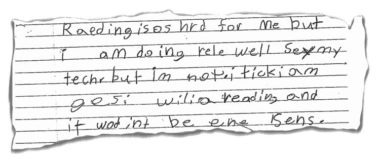 Raeding is os hrd for me but
i am doing rele well Sexmy
techr but Im not iticki am
gesi wilia reading and
it wod int be eng Bens.